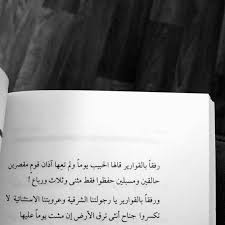 رفقاً بالقوارير قالها الحبيب يوماً ولم تعها آذان قوم مقصرين
حالقين ومسبلين حفظوا فقط مثنى وثلاث ورباع !
ورفقاً بالقوارير يا رجولتنا الشرقية وعروبتنا الاستثنائية لا
تكسروا جناح أنثى ترق الأرض إن مشت يوماً عليها